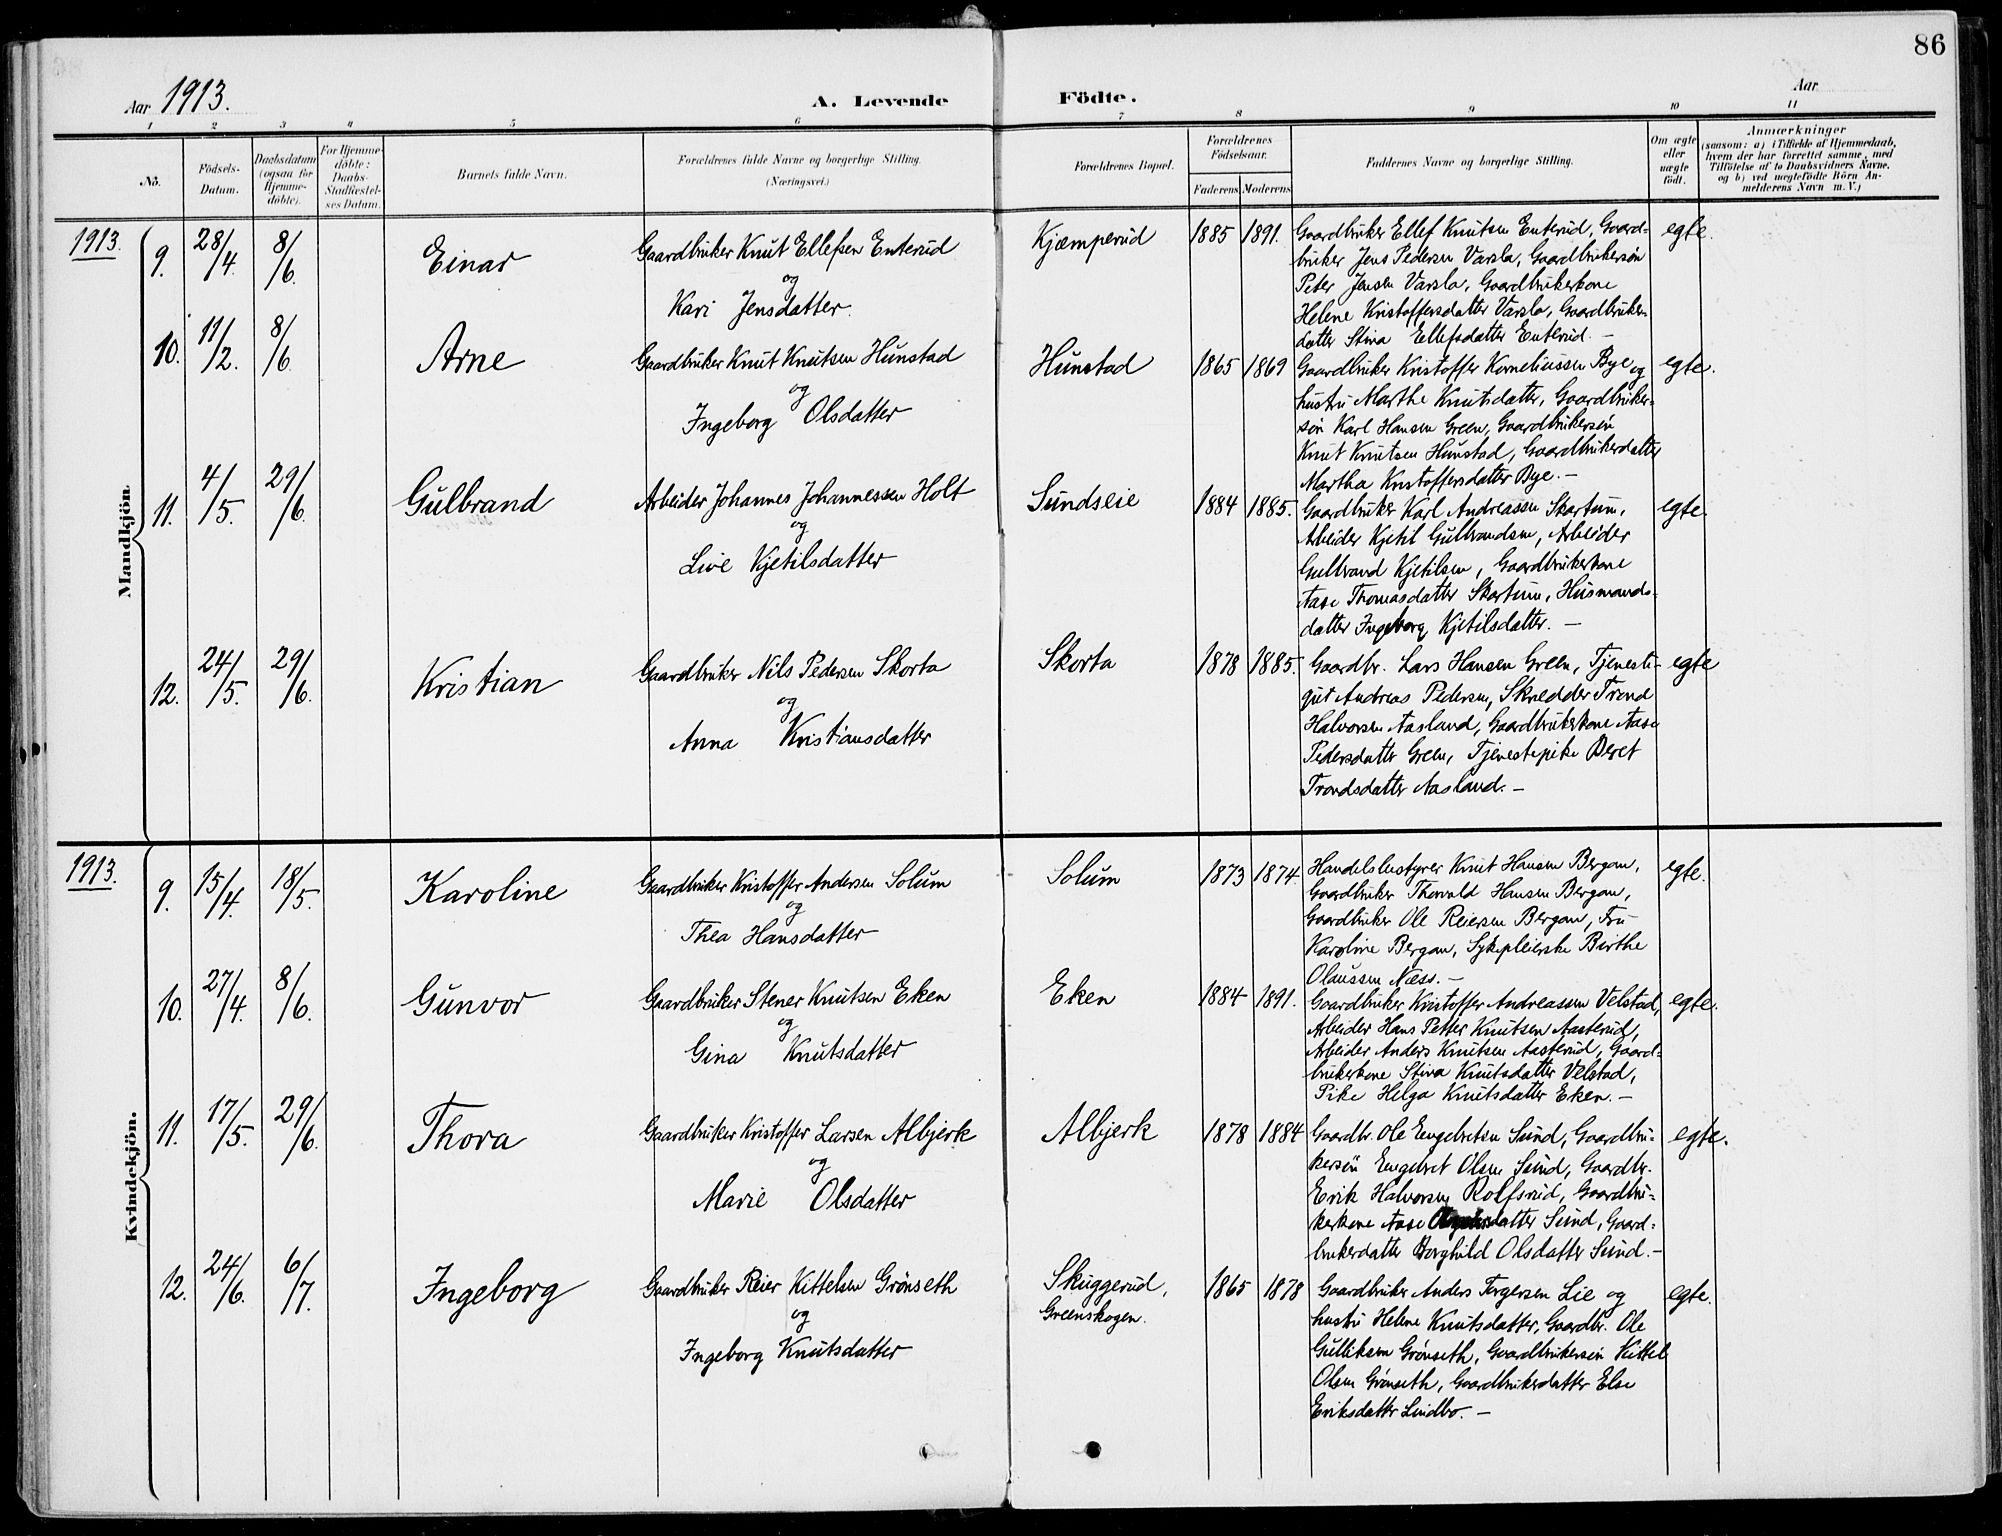 86
Aar 1913.
A. Levende Födte.
Aar
1 2 3 4 5 6 7 8 9 10 11
No.
Födsels-Datum.
Daabsdatum (ogsaa for Hjemme-döbte).
For Hjemme-döbte: Daabs-Stadfæstel-ses Datum.
Barnets fulde Navn.
Forældrenes fulde Navne og borgerlige Stilling.
(Næringsvei.)
Forældrenes Bopæl.
Forældrenes Födselsaar.
Faderens Moderens
Faddernes Navne og borgerlige Stilling.
Om ægte eller uægte födt.
Anmærkninger
(saasom: a) i Tilfælde af Hjemmedaab,
hvem der har forrettet samme, med
Tilföielse af to Daabsvidners Navne,
og b) ved uægtefödte Börn An-
melderens Navn m. V.)
Mandkjön
1913.
9. 28/4. 8/6. Einar
Gaardbruker Knut Ellefsen Enterud
og
Kari Jensdatter.
Kjæmperud 1885 1891.
Gaardbruker Ellef Knutsen Enterud, Gaard-
bruker Jens Pedersen Varsla, Gaardbrukersøn
Peter Jensen Varsla, Gaardbrukerkone
Helene Kristoffersdatter Varsla, Gaardbruker-
datter Stina Ellefsdatter Enterud. —
egte.
10. 11/2. 8/6. Arne
Gaardbruker Knut Knutsen Hunstad
og
Ingeborg Olsdatter
Hunstad 1865 1869
Gaardbruker Kristoffer Korneliussen Bye og
hustru Marthe Knutsdatter, Gaardbruker-
søn Karl Hansen Green, Gaardbrukersøn
Knut Knutsen Hunstad, Gaardbrukerdatter
Martha Kristoffersdatter Bye. —
egte.
11. 4/5. 29/6. Gulbrand
Arbeider Johannes Johannessen Holt
og
Live Kjetilsdatter
Sundseie 1884 1885.
Gaardbruker Karl Andreassen Skartum,
Arbeider Kjetil Gulbrandsen, Arbeider
Gulbrand Kjetilsen, Gaardbrukerkone
Aase Thomasdatter Skartum, Husmands-
datter Ingeborg Kjetilsdatter. —
egte.
12. 24/5. 29/6. Kristian
Gaardbruker Nils Pedersen Skorta
og
Anna Kristiansdatter
Skorta 1878 1885.
Gaardbr. Lars Hansen Green, Tjeneste-
gut Andreas Pedersen, Skredder Trond
Halvorsen Aasland, Gaardbrukerkone Aase
Pedersdatter Green, Tjenestepike Beret
Trondsdatter Aasland. —
egte
Kvindekjön.
1913.
9. 15/4. 18/5. Karoline
Gaardbruker Kristoffer Andersen Solum
og
Thea Hansdatter
Solum 1873 1874.
Handelsbestyrer Knut Hansen Bergan,
Gaardbruker Thorvald Hansen Bergan,
Gaardbruker Ole Reiersen Bergan, Fru
Karoline Bergan, Sykepleierske Birthe
Olaussen Næss. —
egte.
10. 27/4. 8/6. Gunvor
Gaardbruker Stener Knutsen Eken
og
Gina Knutsdatter
Eken 1884 1891.
Gaardbruker Kristoffer Andreassen Velstad,
Arbeider Hans Petter Knutsen Aasterud,
Arbeider Anders Knutsen Aasterud, Gaard-
brukerkone Stina Knutsdatter Velstad,
Pike Helga Knutsdatter Eken. —
egte.
11. 17/5. 29/6. Thora
Gaardbruker Kristoffer Larsen Albjerk
og
Marie Olsdatter
Albjerk 1878 1884
Gaardbr. Ole Engebretsen Sund, Gaardbru-
kersøn Engebret Olsen Sund, Gaardbr.
Erik Halvorsen Rolfsrud, Gaardbru-
kerkone Aase Sund, Gaard-
brukerdatter Borghild Olsdatter Sund. —
egte.
12. 24/6. 6/7. Ingeborg
Gaardbruker Reier Kittelsen Grønseth
og
Ingeborg Knutsdatter
Skuggerud,
Greenskogen. 1865 1878
Gaardbruker Anders Torgersen Lie og
hustru Helene Knutsdatter, Gaardbr. Ole
Gulliksen Grønseth, Gaardbrukersøn Kittel
Olsen Grønseth, Gaardbrukerdatter Else
Eriksdatter Lindbo. —
egte.